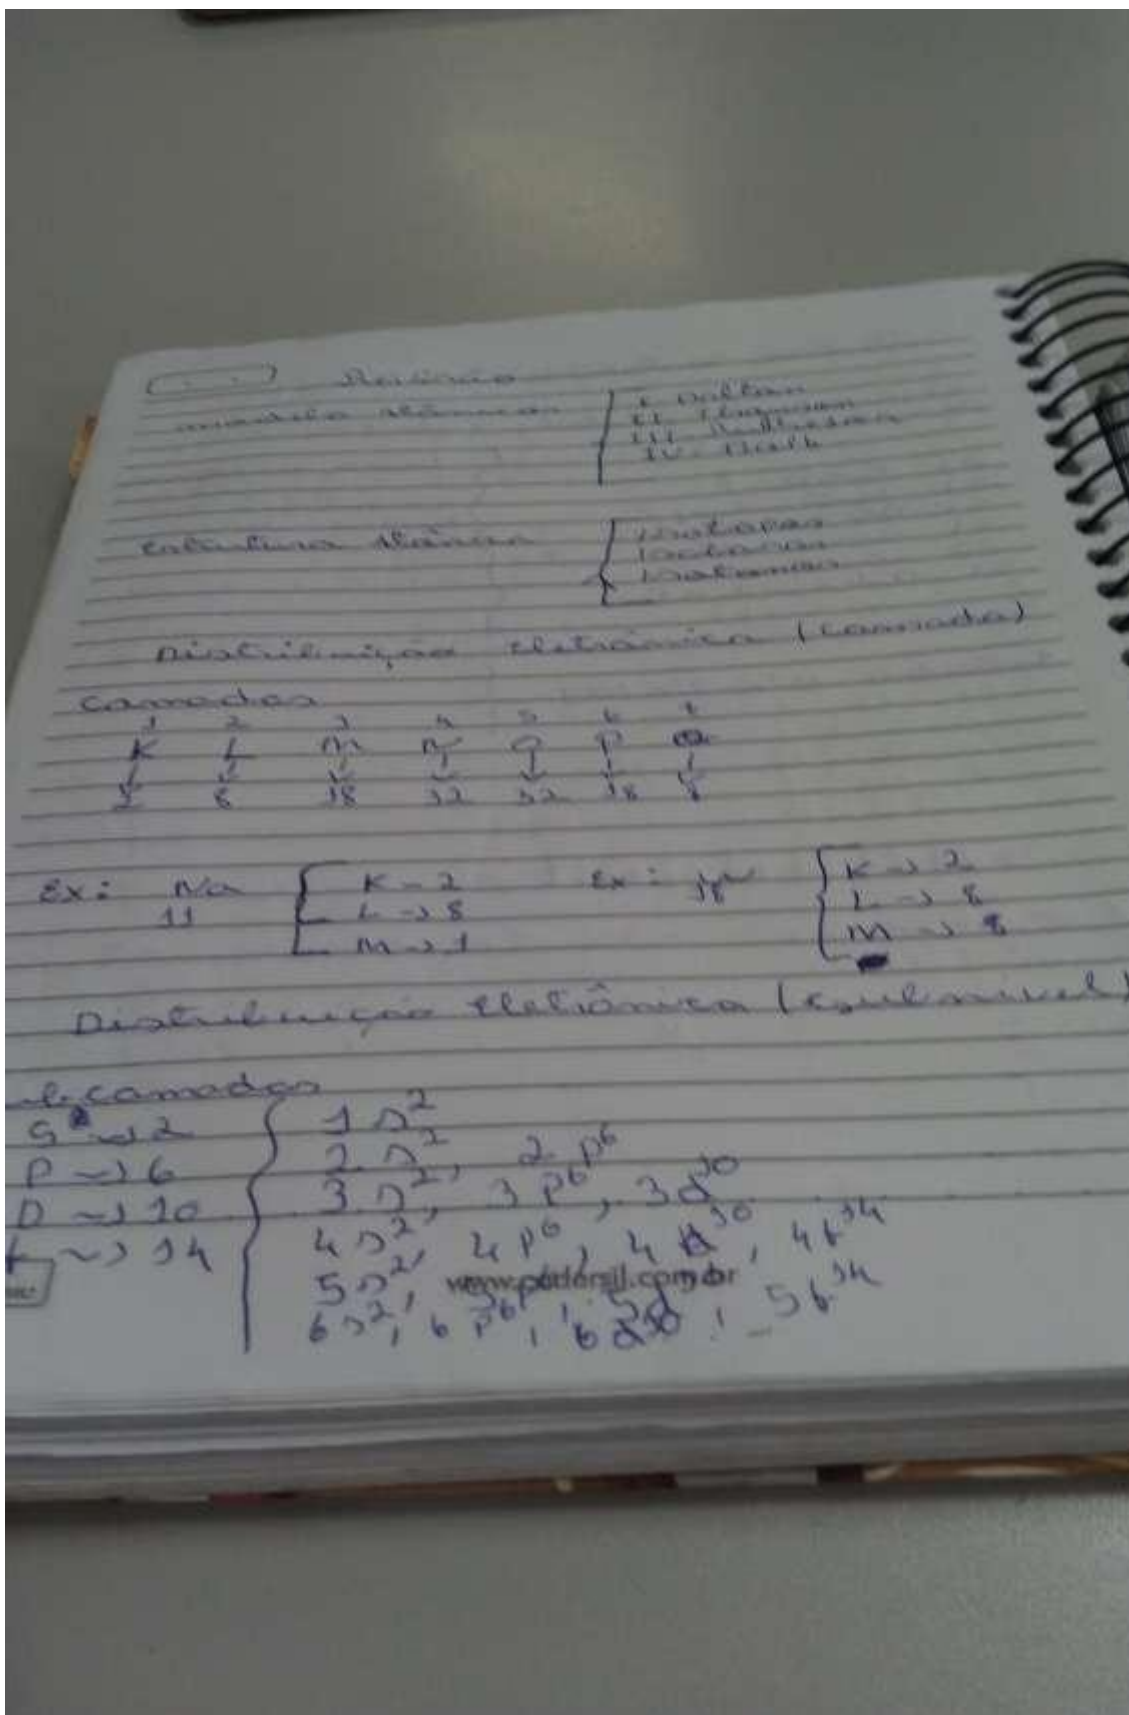 modelo atômicos
I Dalton
II Thomson
III Rutherford
IV - Bohr
estrutura atômica
isotopos
isobaros
isotonos
Distribuição eletrônica (camada)
camadas
1 2 3 4 5 6 7
K L M N O P Q
2 8 18 32 32 18 8
Ex: Na
11
K - 2
L → 8
M → 1
Ex: 18
K → 2
L → 8
M → 8
Distribuição eletrônica (subnivel)
camadas
S → 2
P → 6
D → 10
f → 14
1s²
2s², 2p⁶
3s², 3p⁶, 3d¹⁰
4s², 4p⁶, 4d¹⁰, 4f¹⁴
5s², 5f¹⁴
6s², 6p⁶, 6d¹⁰